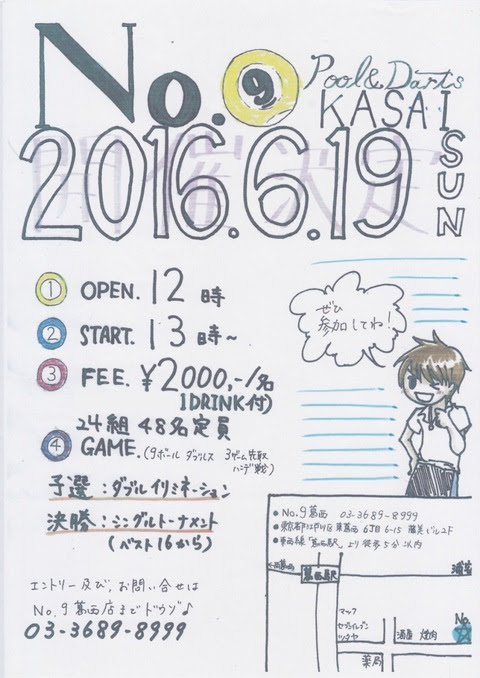 No.9
Pool & Darts
KASAI
開催決定
2016.6.19
SUN
① OPEN. 12時
② START. 13時~
③ FEE. ¥2000,-/名
1DRINK付)
24組 48名定員
④ GAME. (9ボール ダブルス 3ゲーム先取
ハンデ戦)
予選:ダブルイリミネーション
決勝:シングルトーナメント
(ベスト16から)
ぜひ
参加してね!
エントリー及び、お問い合せは
No.9葛西店までドウゾ♪
03-3689-8999
●No.9葛西 03-3689-8999
●東京都江戸川区東葛西6丁目6-15 藤美ビル2F
●東西線「葛西駅」より徒歩5分以内
←西葛西
葛西駅
浦安
マック
セブンイレブン
ツタヤ
酒蔵 焼肉
No.
薬局